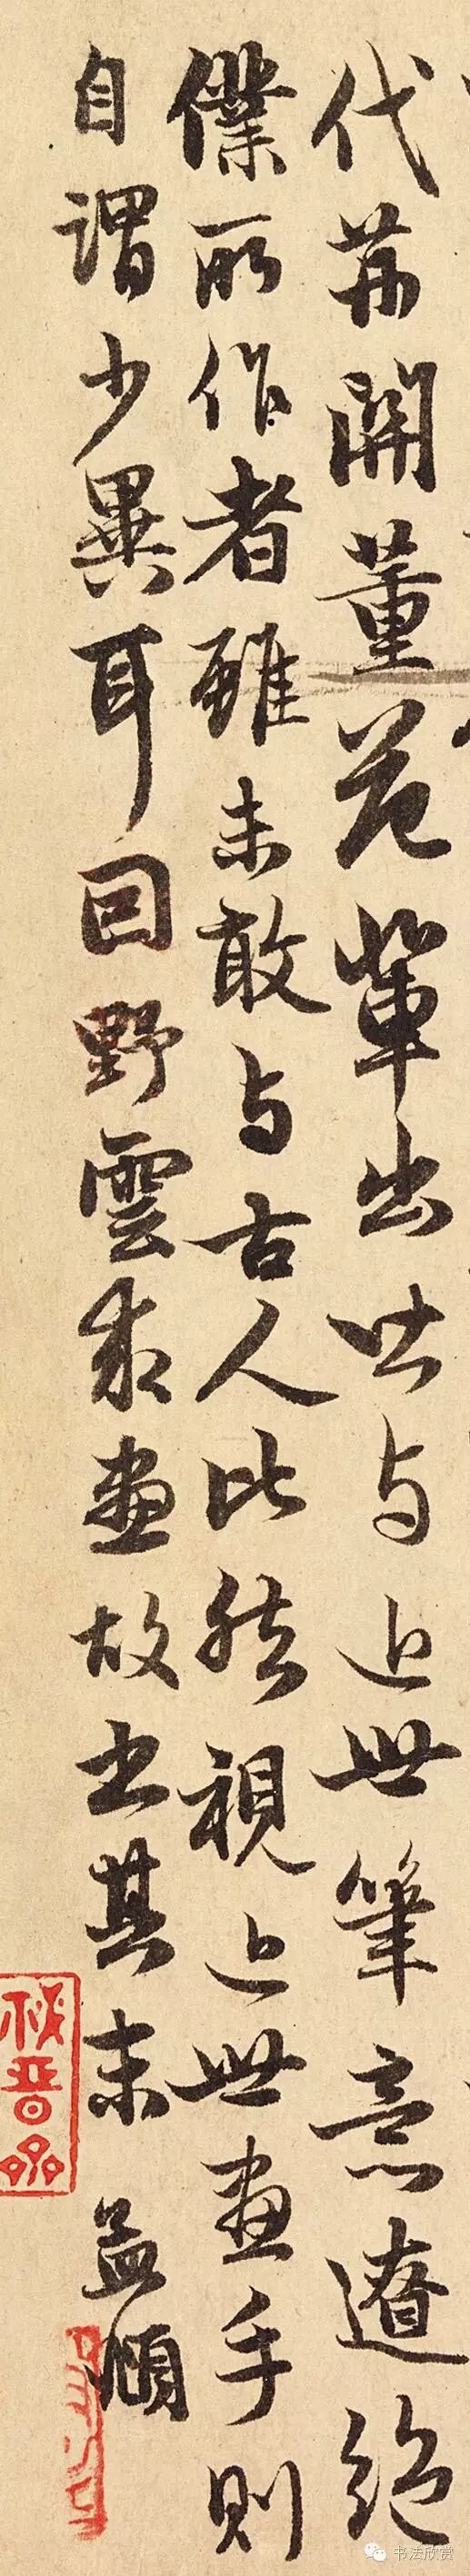 代荊關董范輩出皆与近世筆意遼絕
僕所作者雖未敢与古人比然視近世畫手則
自謂少異耳因野雲求畫故書其末 孟頫
书法欣赏